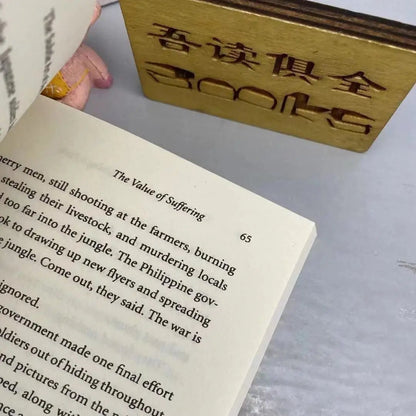 吾读俱全
BOOKS
The Value of Suffering
65
erry men, still shooting at the farmers, burning
stealing their livestock, and murdering locals
d too far into the jungle. The Philippine gov-
ok to drawing up new flyers and spreading
e jungle. Come out, they said. The war is
ignored.
government made one final effort
oldiers out of hiding throughout
and pictures from the
ped, along with